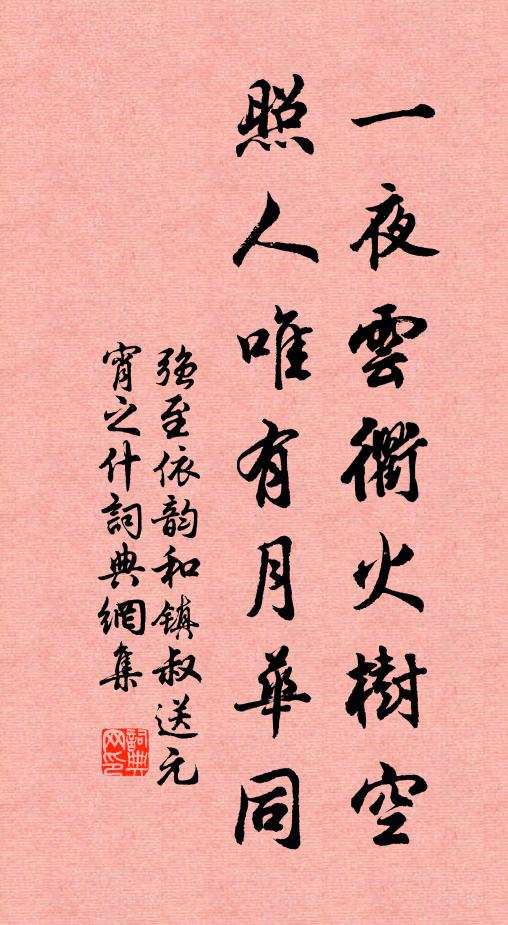 一夜雲衢火樹空
照人唯有月華同
強至依韵和鎮叔送元
宵之什詞典網集
詞典
网印